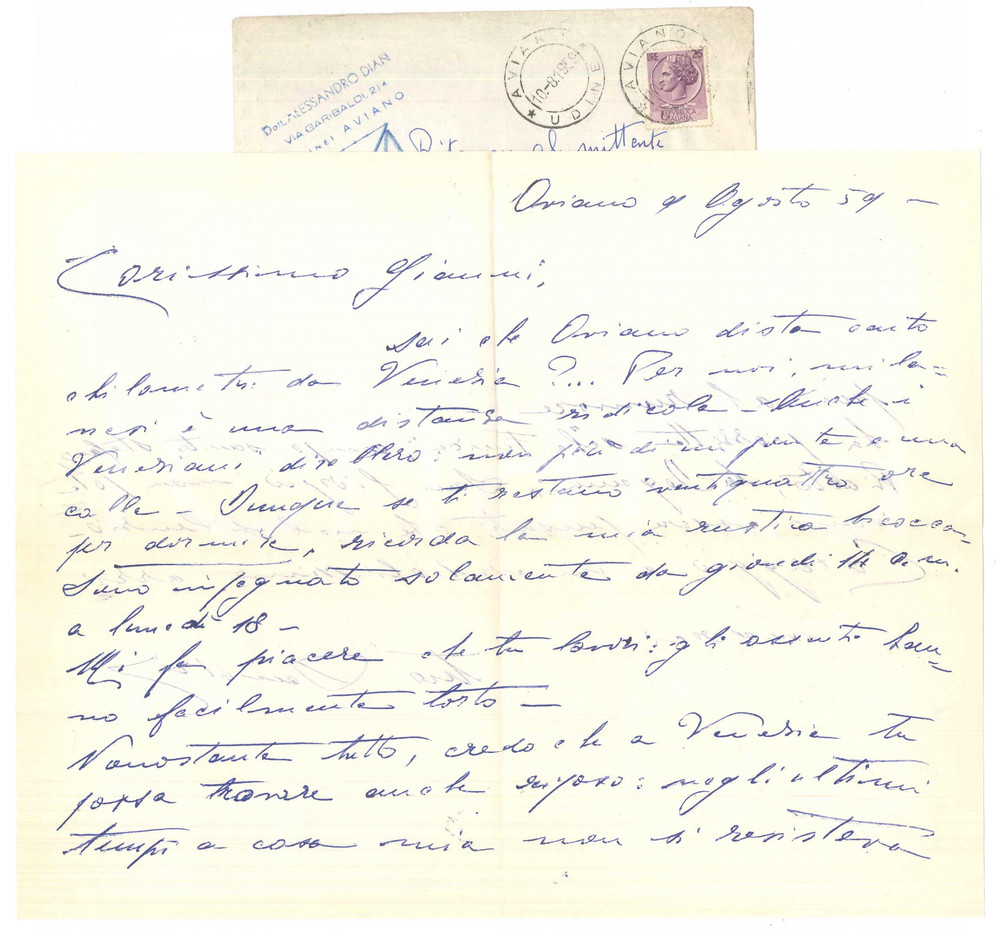 Dott. ALESSANDRO DIAN
VIA GARIBALDI, 21A
AVIANO
* AVIANO * UDINE
10-8.1959
AVIANO
LIRE 25
REPUBBLICA
ITALIANA
al mittente
Aviano 9 Agosto 59 -
Carissimo Gianni,
sai che Aviano dista cento
chilometri da Venezia ?... Per noi, mila-
nesi è una distanza ridicola - Anche i
Veneziani diventano: non più di un ponte a una
calle - Dunque se ti restano ventiquattro ore
per dormire, ricorda la mia rustica bicocca -
Sono impegnato solamente da giovedì 14 c.m.
a lunedì 18 -
Mi fa piacere che tu lavori: gli assenti han-
no facilmente torto -
Nonostante tutto, credo che a Venezia tu
possa trovare anche riposo: negli ultimi
tempi a casa mia non si resisteva